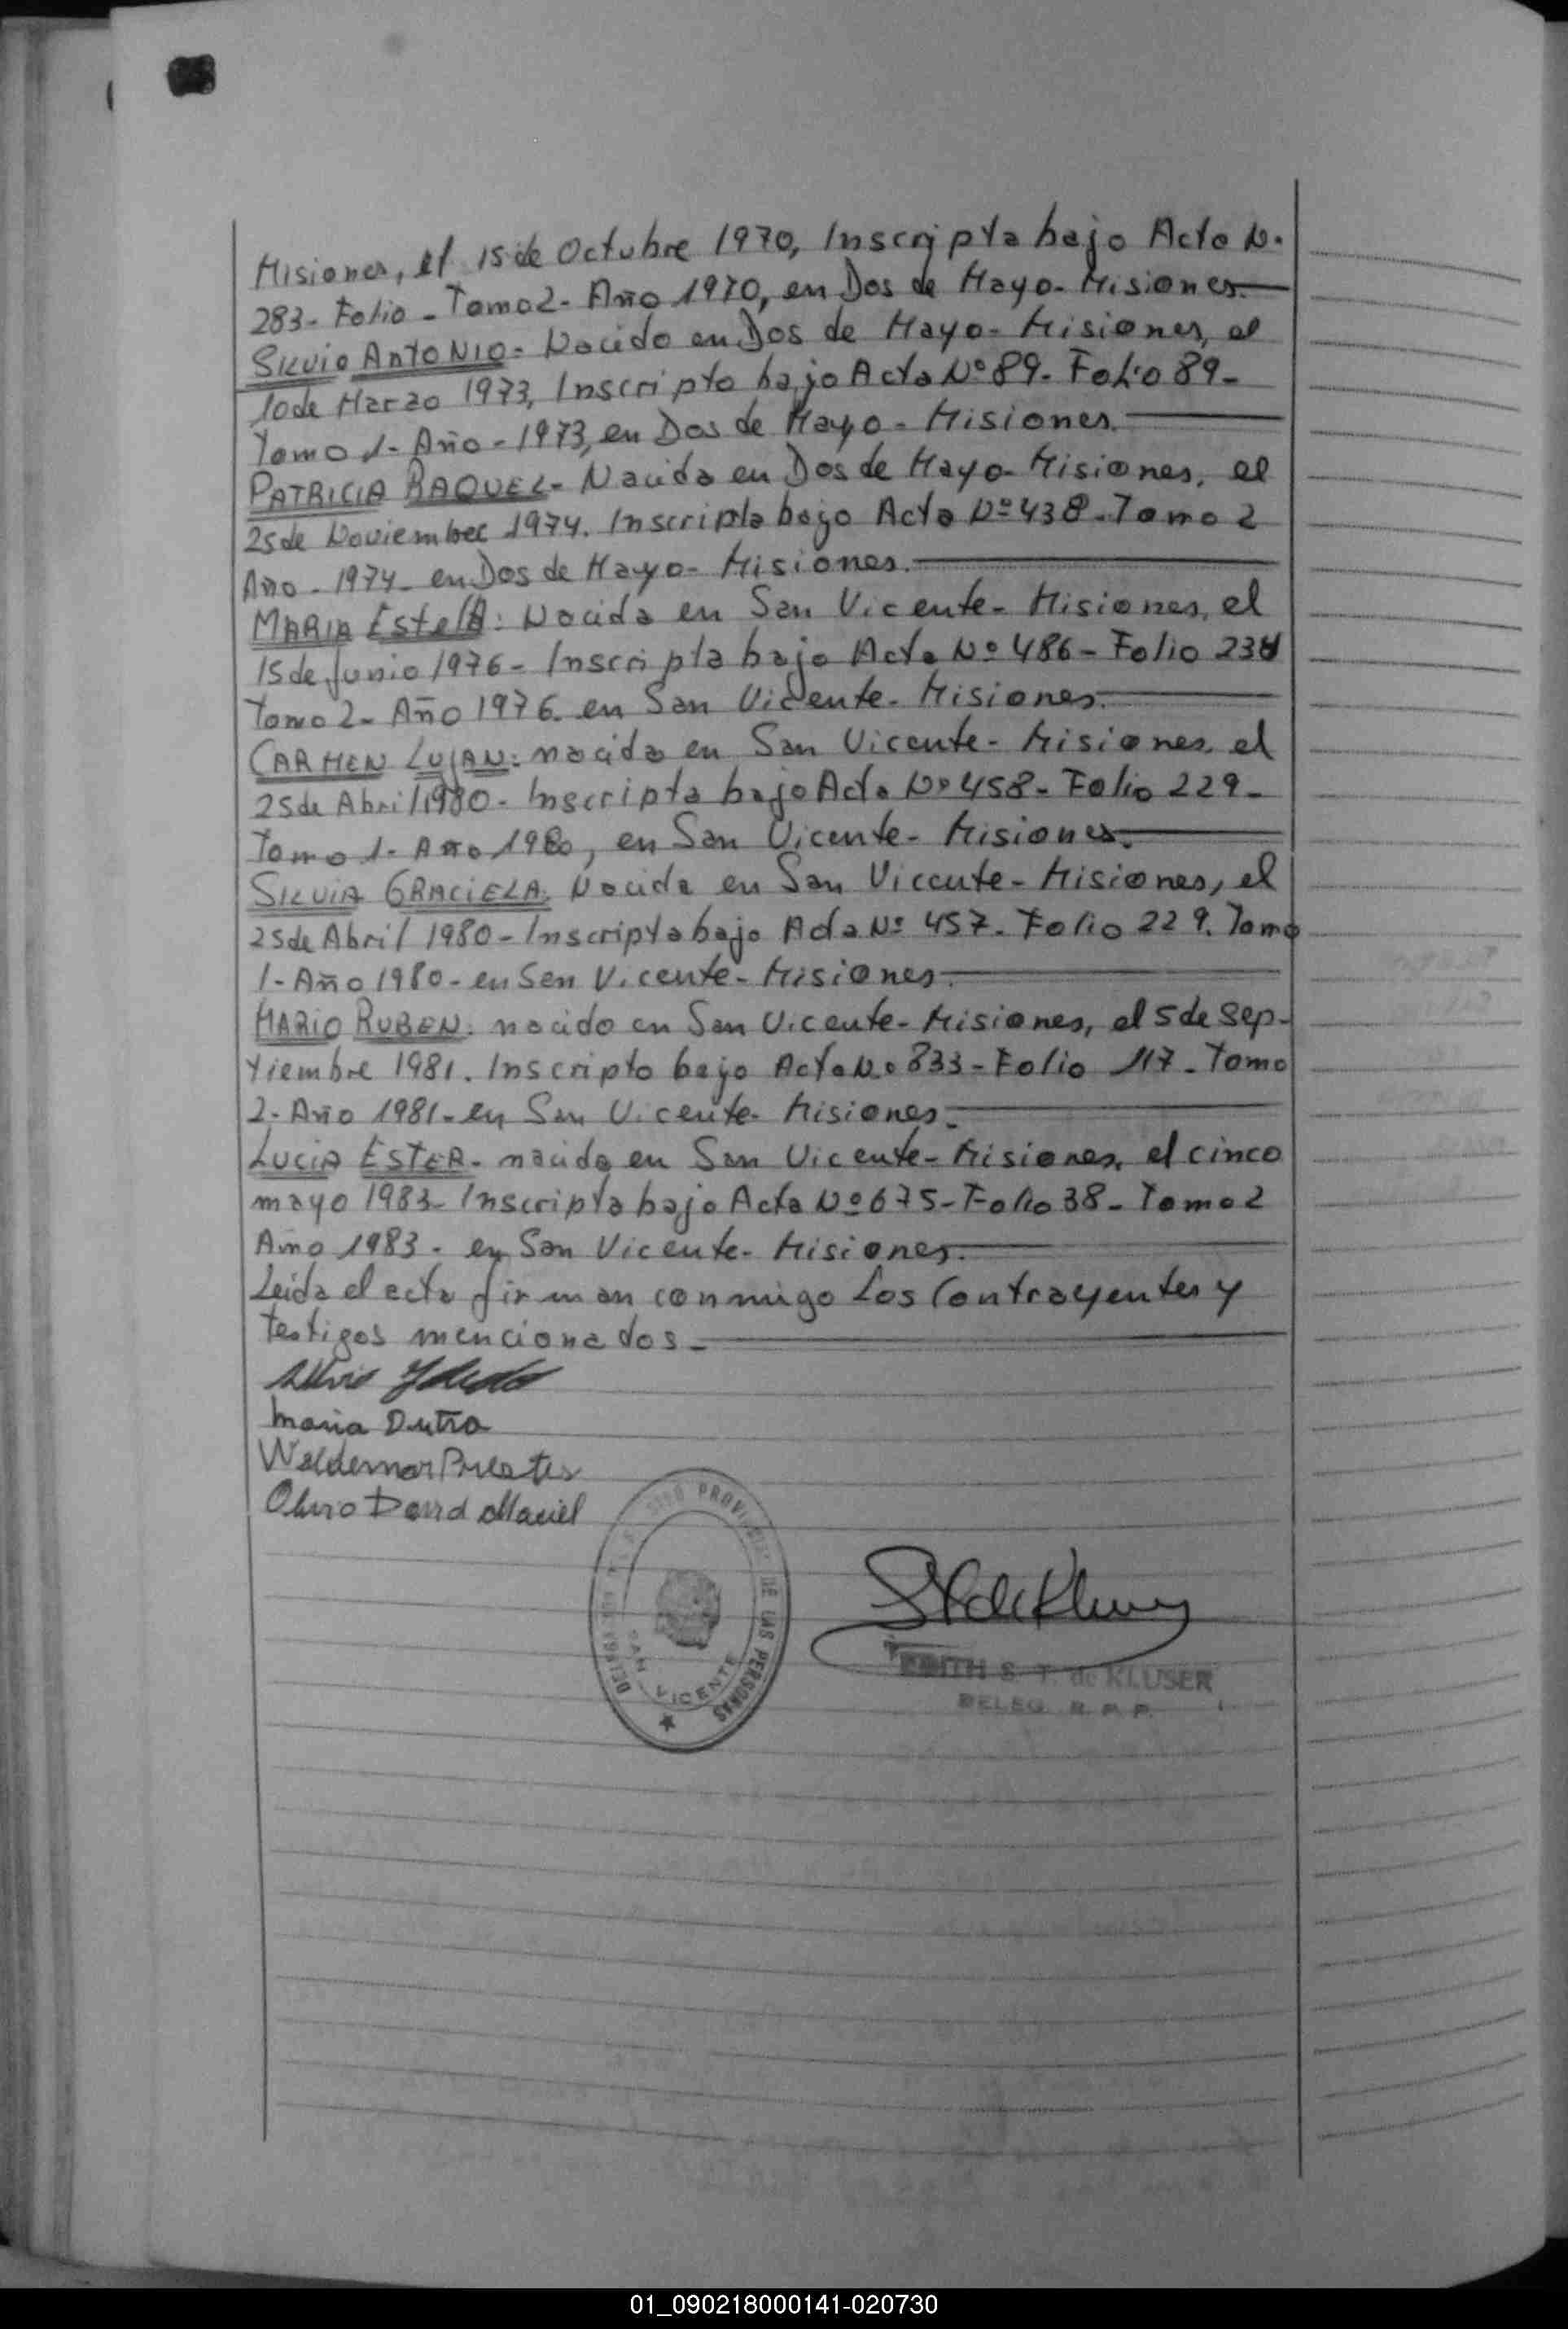 Misiones, el 15 de Octubre 1970, Inscripta bajo Acta N.
283- Folio - Tomo 2- Año 1970, en Dos de Mayo- Misiones.
SILVIO ANTONIO- Nacido en Dos de Mayo- Misiones, el
10 de Marzo 1973, Inscripto bajo Acta Nº 89- Folio 89-
Tomo 1- Año - 1973, en Dos de Mayo - Misiones.
PATRICIA RAQUEL- Nacida en Dos de Mayo- Misiones, el
25 de Noviembre 1974. Inscripta bajo Acta Nº 438- Tomo 2
Año - 1974- en Dos de Mayo- Misiones.
MARIA EstelA: Nacida en San Vicente- Misiones, el
15 de Junio 1976- Inscripta bajo Acta Nº 486- Folio
Tomo 2- Año 1976. en San Vicente- Misiones.
CARMEN LUJAN: nacida en San Vicente- Misiones, el
25 de Abril 1980- Inscripta bajo Acta Nº 458- Folio 229-
Tomo 1- Año 1980, en San Vicente- Misiones.
SILVIA GRACIELA: Nacida en San Vicente- Misiones, el
25 de Abril 1980- Inscripta bajo Acta Nº 457- Folio 229. Tomo
1- Año 1980- en San Vicente- Misiones.
MARIO RUBEN: nacido en San Vicente- Misiones, el 5 de Sep-
tiembre 1981. Inscripto bajo Acta Nº 833- Folio 117- Tomo
2- Año 1981- en San Vicente- Misiones.
LUCIA ESTER- nacida en San Vicente- Misiones, el cinco
mayo 1983- Inscripta bajo Acta Nº 675- Folio 38- Tomo 2
Año 1983- en San Vicente- Misiones.
Leida el acta firman conmigo Los Contrayentes y
testigos mencionados-
Silvio
Maria Dutra
Waldemar Prestes
Olivio David Maciel
PROVINCIAL DE LAS PERSONAS
SAN VICENTE
EDITH S. T. de KLUSER
DELEG. R. P. P.
01_090218000141-020730